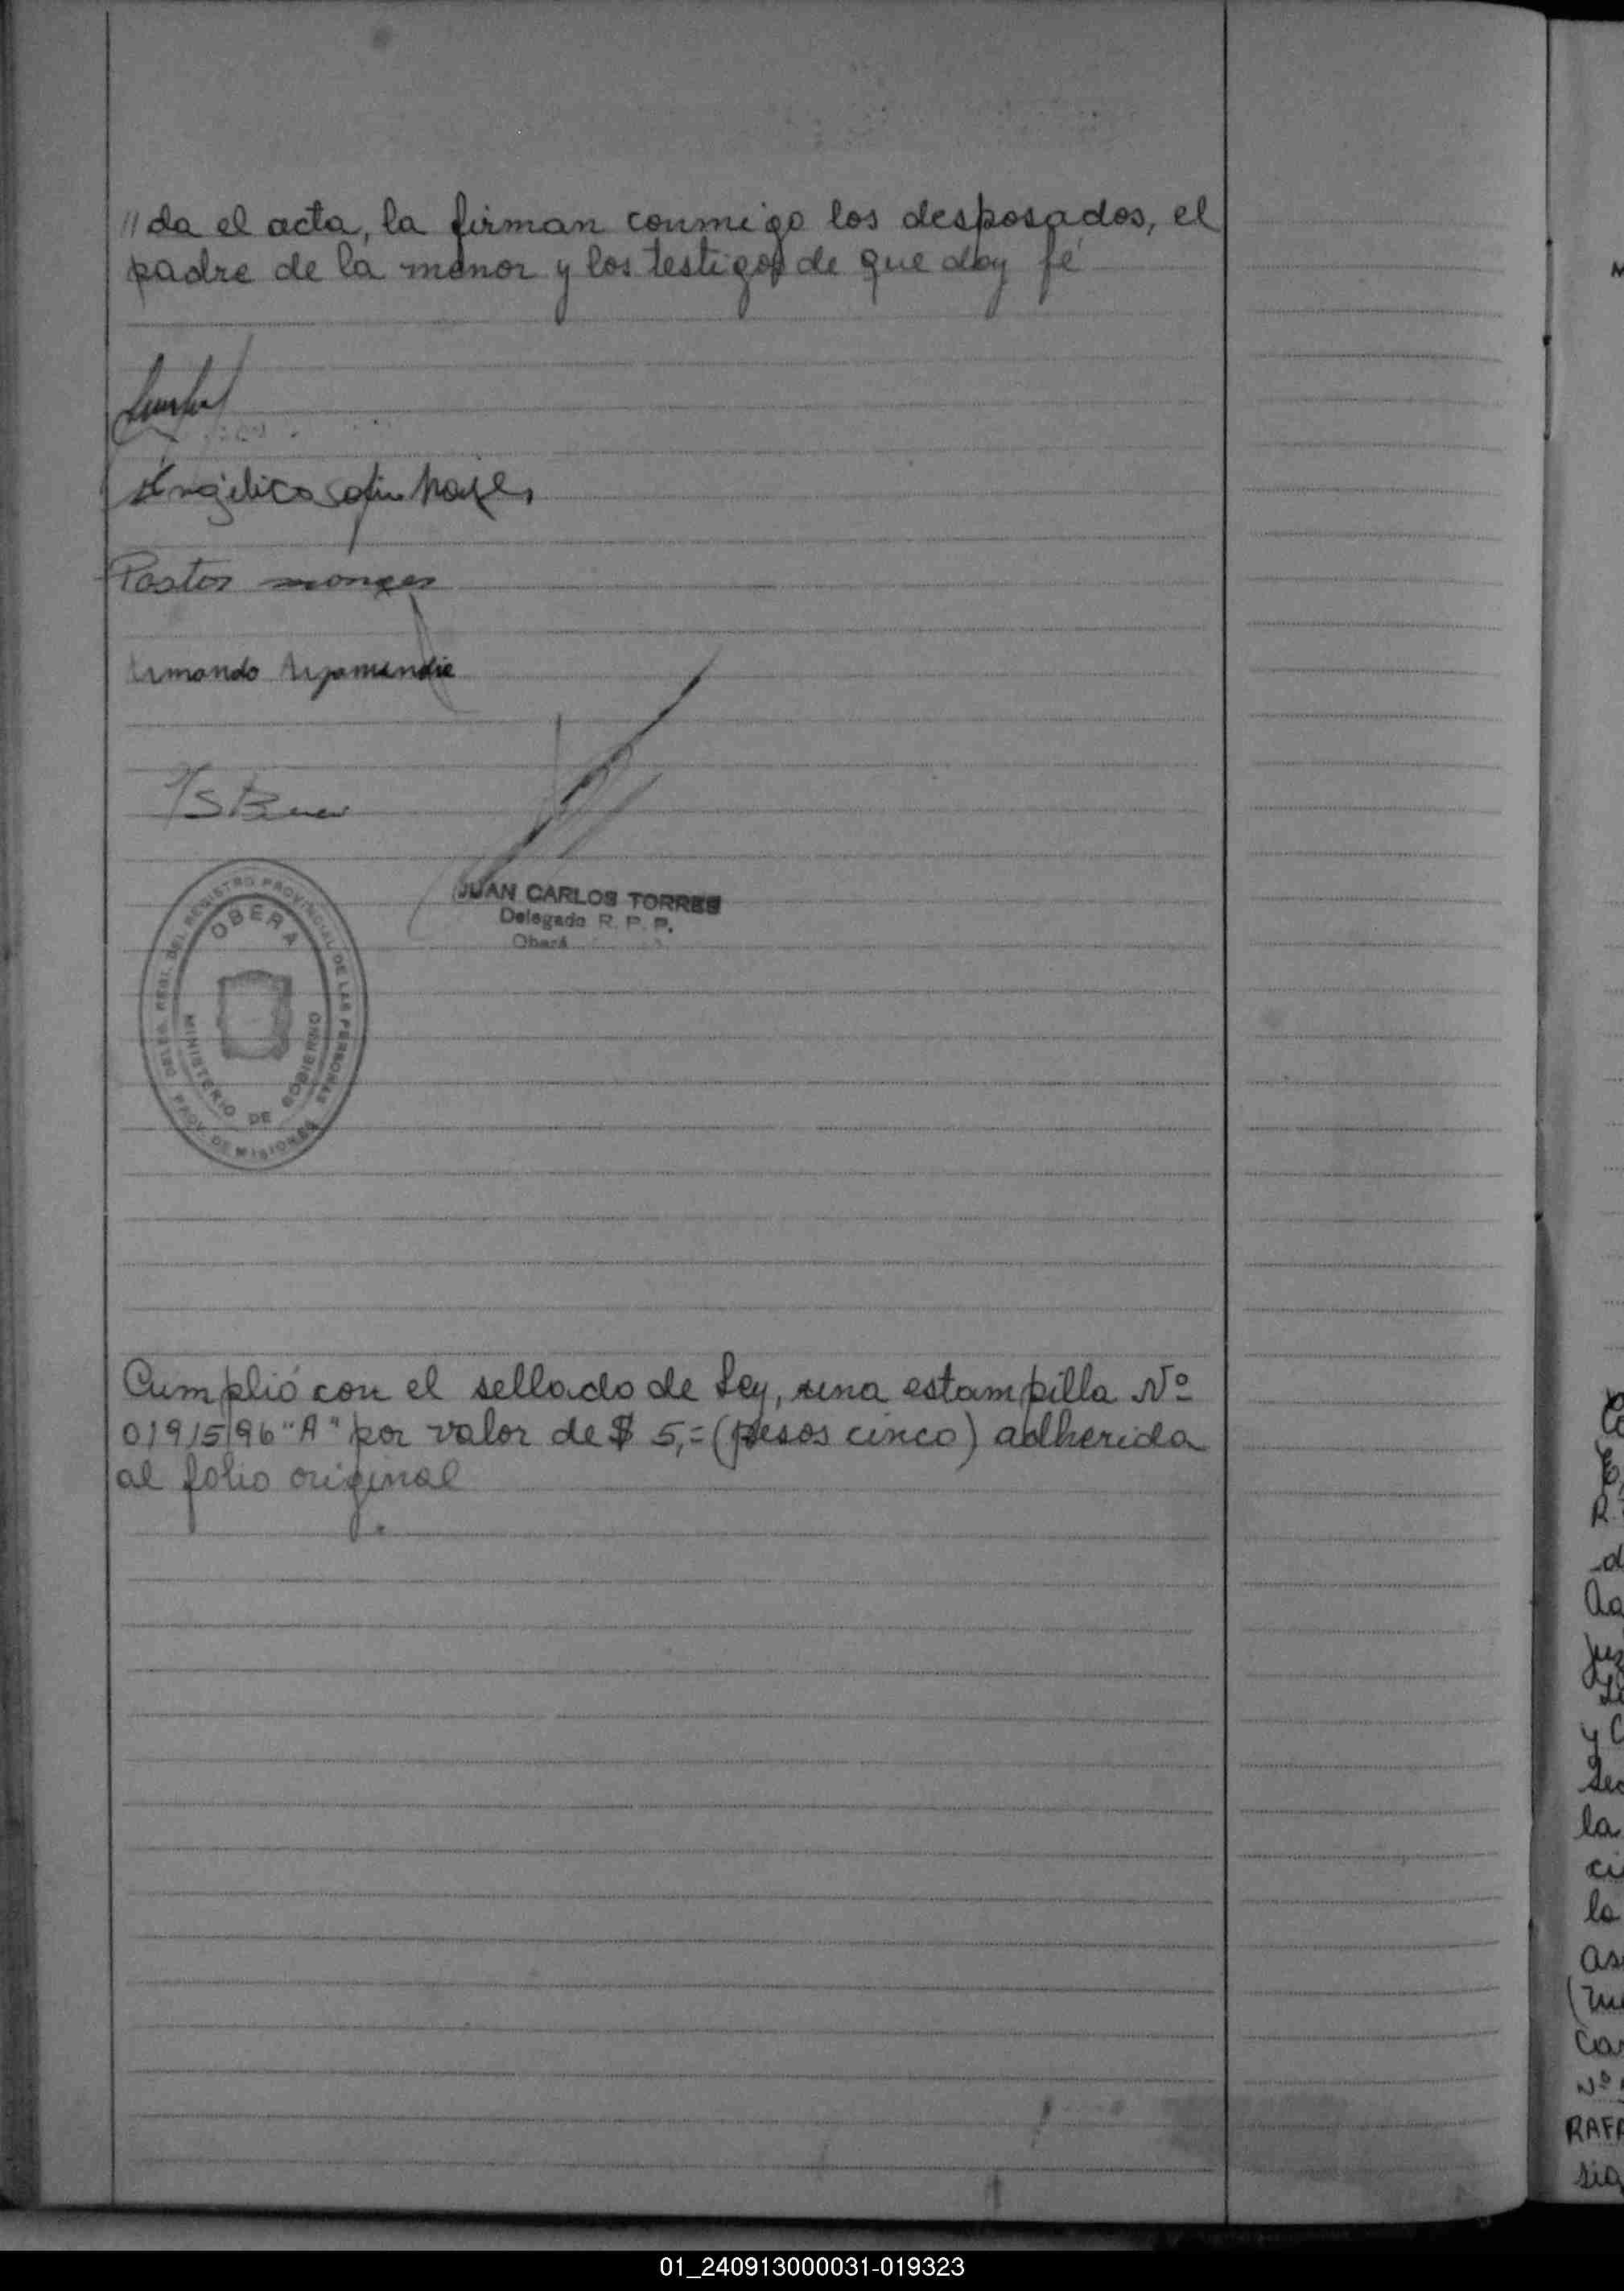 "da el acta, la firman conmigo los desposados, el
padre de la menor y los testigos de que doy fé
Angélica
Pastor monges
Armando
JUAN CARLOS TORRES
Delegado R. P. P.
Oberá
DELEG. REGI. DEL REGISTRO PROVINCIAL DE LAS PERSONAS
OBERA
MINISTERIO DE GOBIERNO
PROV. DE MISIONES
Cumplió con el sellado de Ley, una estampilla Nº
01915196 "A" por valor de $ 5,= (pesos cinco) adherida
al folio original.
01_240913000031-019323